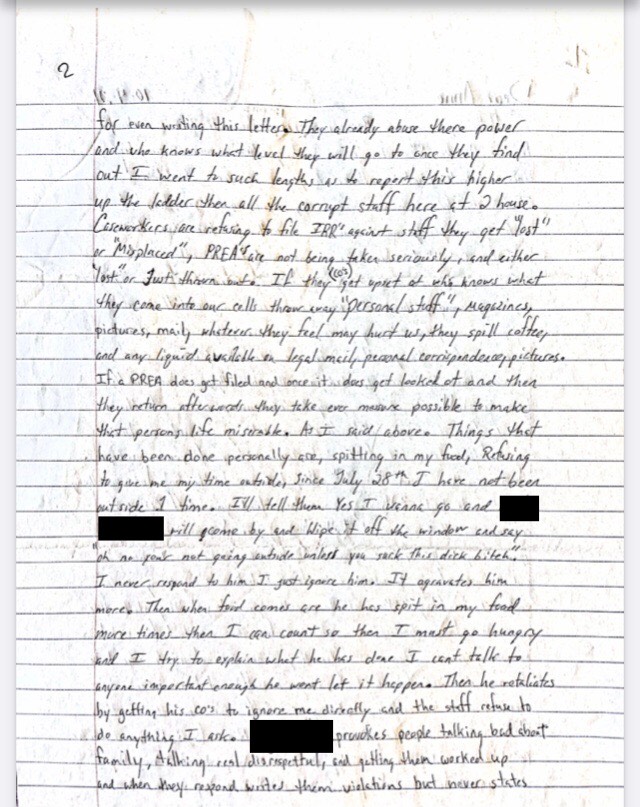 2
for even writing this letter. They already abuse there power
and who knows what level they will go to once they find
out I went to such lengths as to report this higher
up the ladder then all the corrupt staff here at 2 house.
Caseworkers are refusing to file IRR's against staff they get "lost"
or "Misplaced", PREA's are not being taken seriously, and either
"lost" or Just thrown out. If they (co's) get upset at who knows what
they come into our cells throw away "personal stuff", magazines,
pictures, mail, whatever they feel may hurt us, they spill coffee,
and any liquid available on legal mail, personal correspondence, pictures.
If a PREA does get filed and once it does get looked at and then
they return afterwords they take ever measure possible to make
that persons life miserable. As I said above. Things that
have been done personally are, spitting in my food, Refusing
to give me my time outside, since July 28th I have not been
outside 1 time. I'll tell them Yes I wanna go and
will come by and wipe it off the window and say
"oh no your not going outside unless you suck this dick bitch."
I never respond to him I just ignore him. It agravates him
more. Then when food comes are he has spit in my food
more times then I can count so then I must go hungry
and I try to explain what he has done I cant talk to
anyone important enough he wont let it happen. Then he retaliates
by getting his co's to ignore me directly and the staff refuse to
do anything I ask. provokes people talking bad about
family, talking real disrespectful, and getting them worked up
and when they respond writes them violations but never states